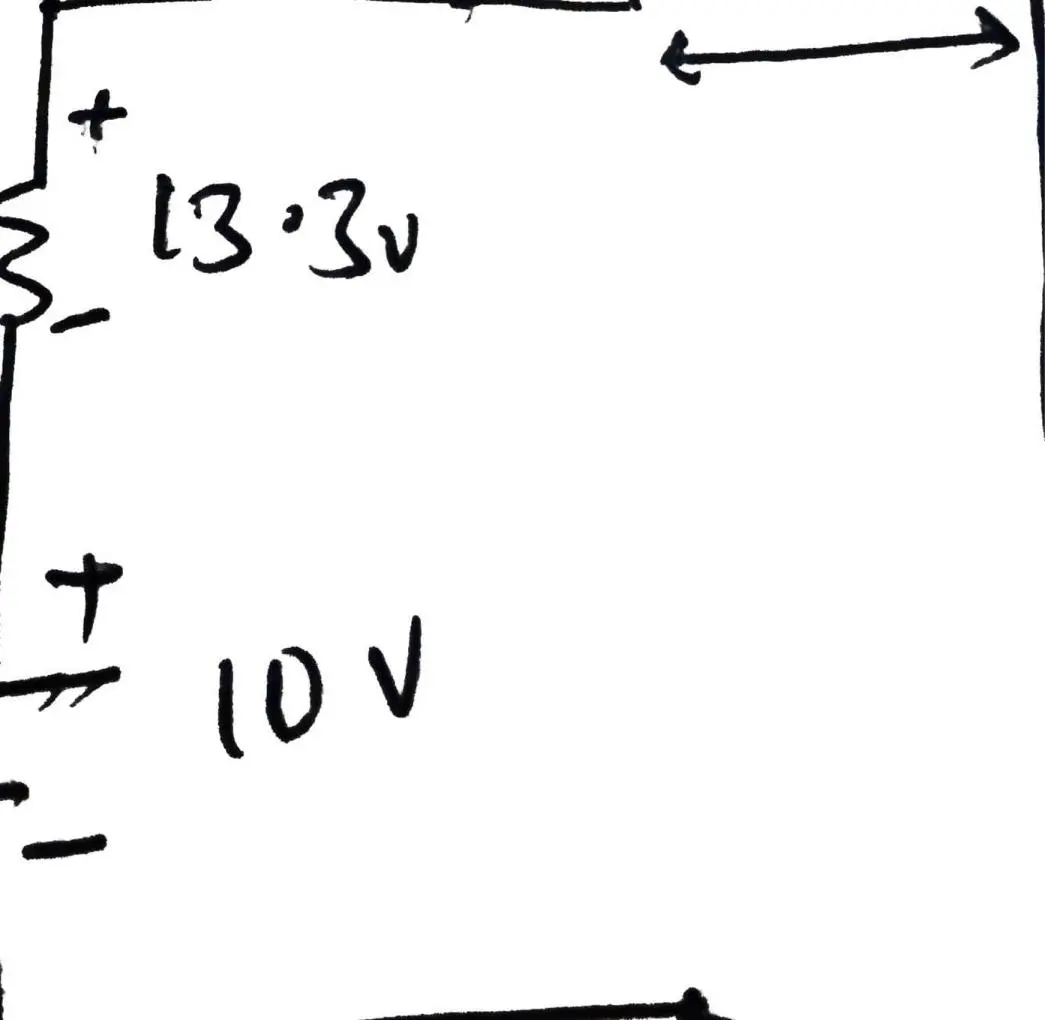 +
13.3v
-
+
10 V
-